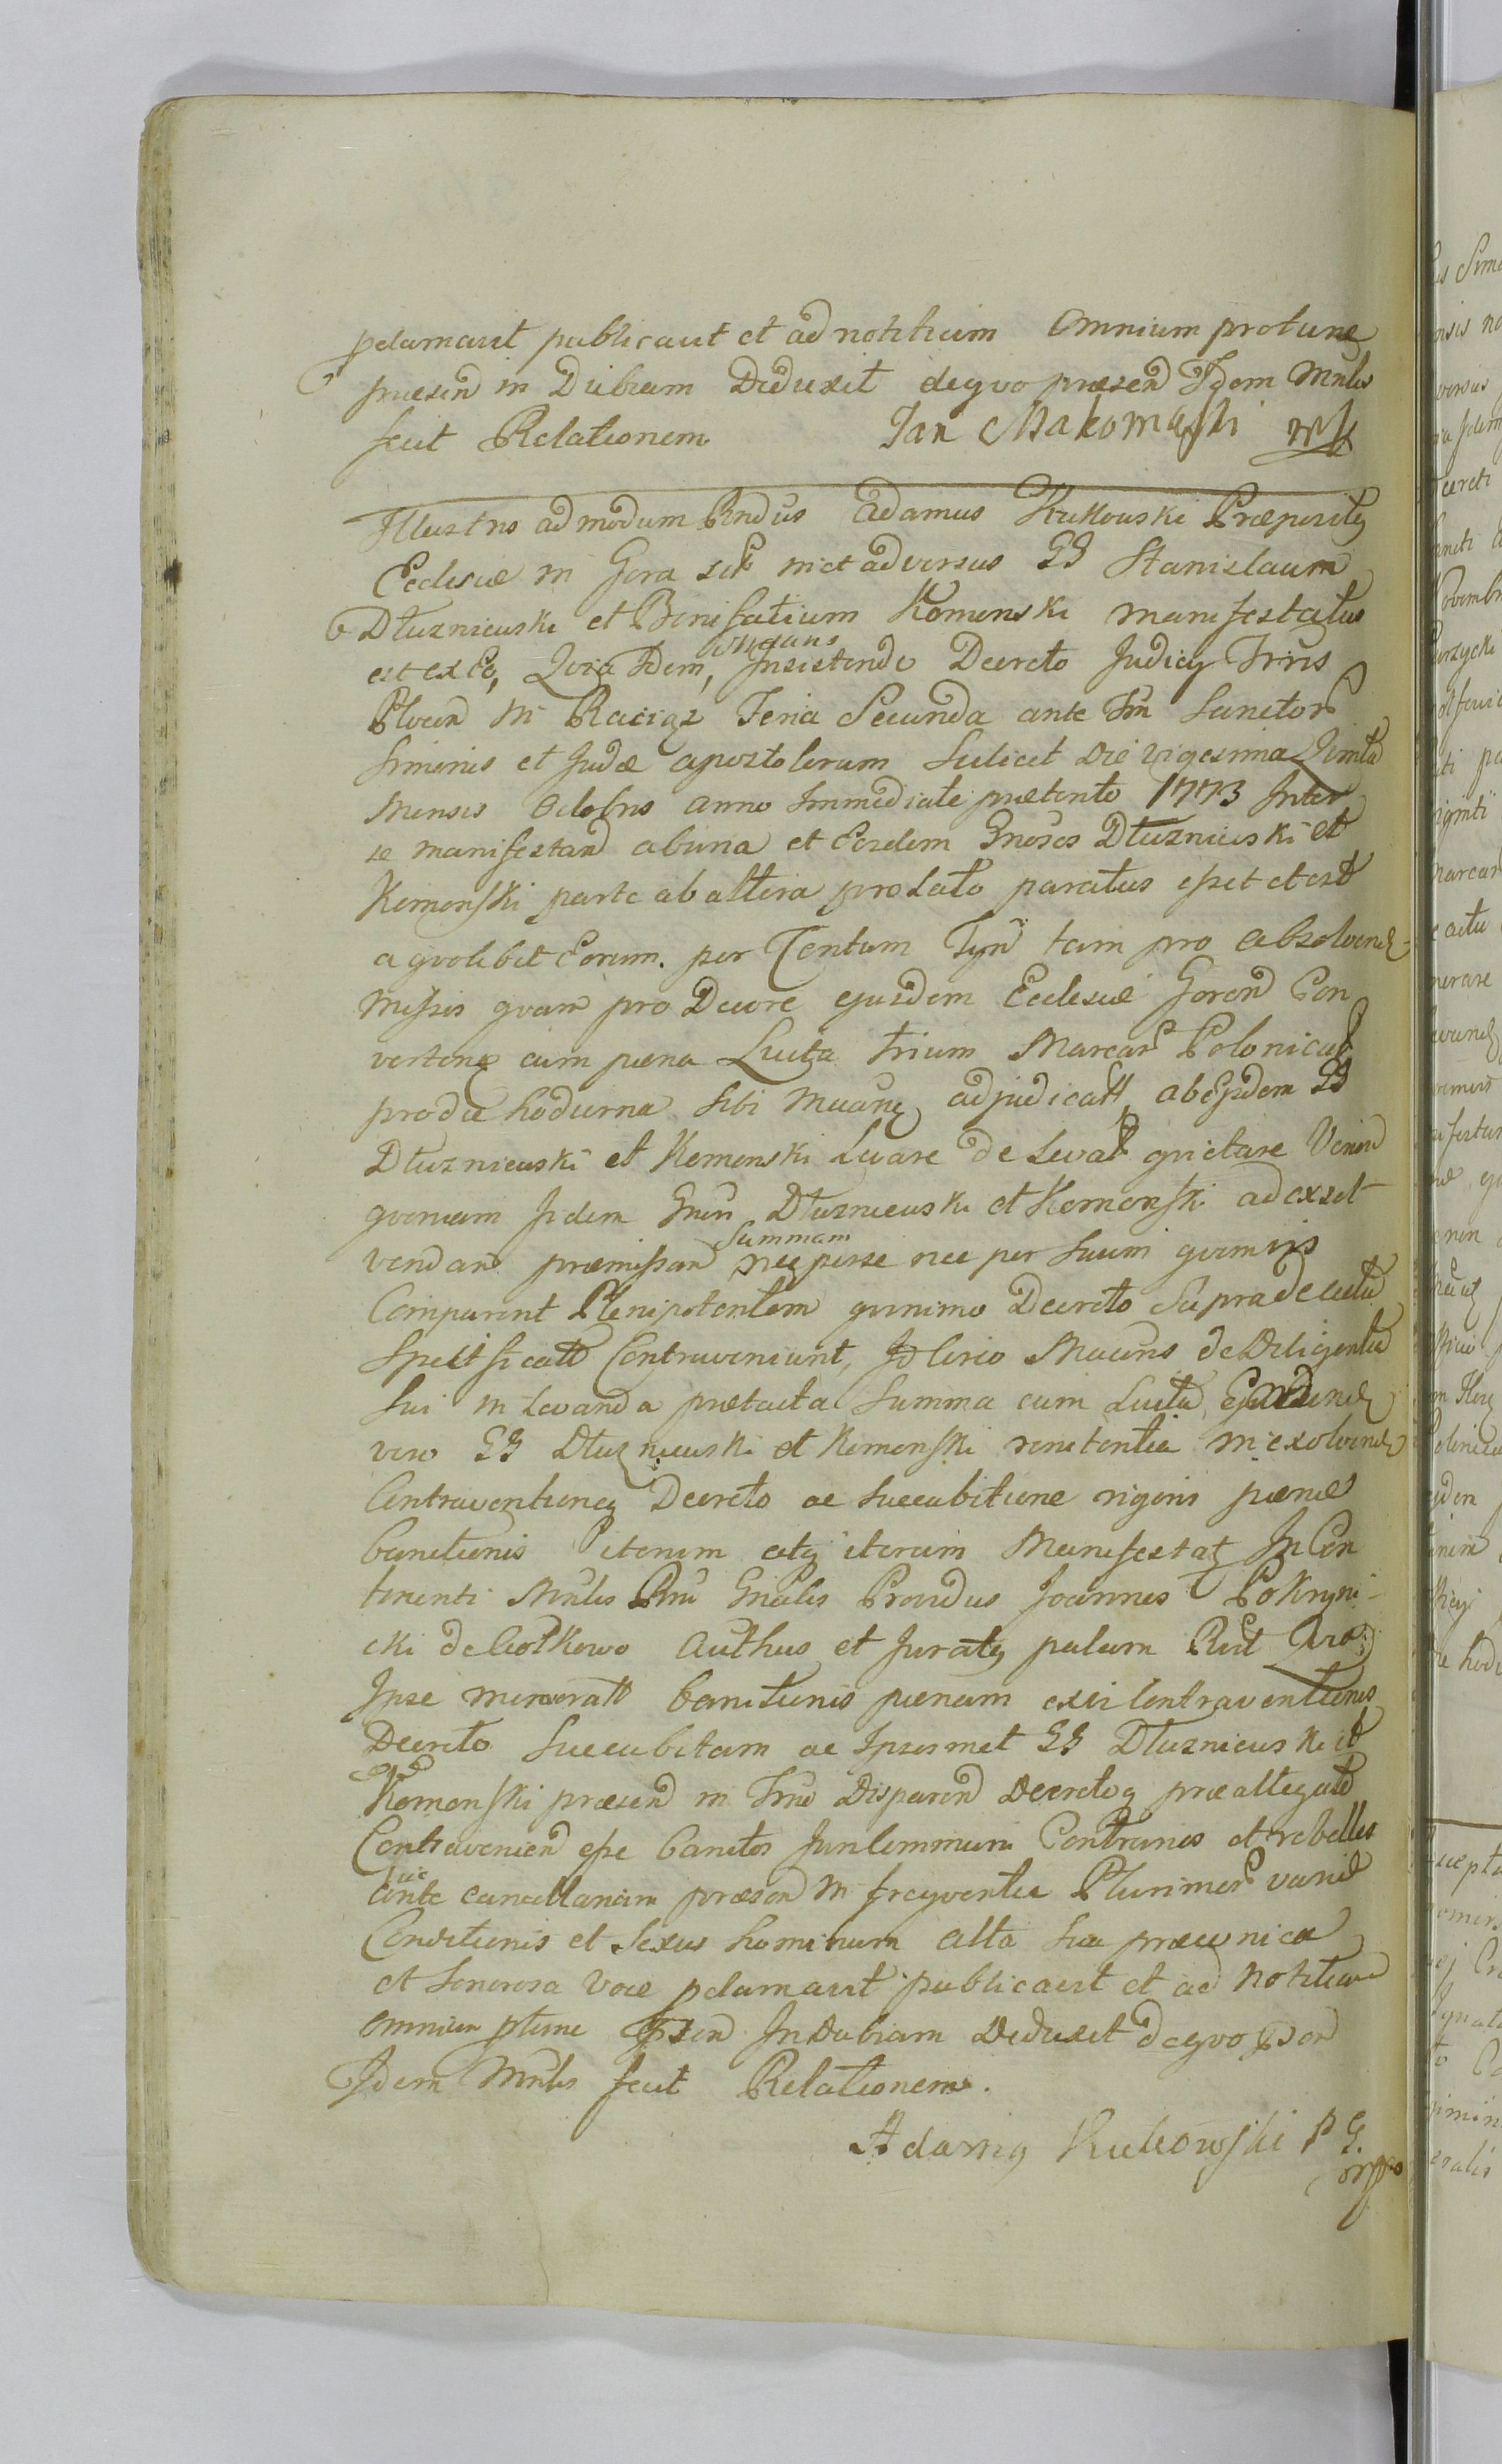 pclamavit publicavit et ad notitiam Omnium protunc
præsen in Dubiam Deduxit deqvo præsen Idem Mnlis
fecit Relationem Jan Makomaski mp
Illustris admodum Rndus Adamus Kukowski Præpositg
Ecclesiæ in Gora sol nict adversus GG Stanislaum
Dłuzniewski et Bonifatium Komenski manifestatus
est ex Eo, Qvia Idem, Insistendo Decreto Judicy Trris
Plocen in Raciąz Feria Secunda ante Fm Sanctor
Simonis et Judæ apostolorum Scilicet Die vigesima Qvinta
Mensis Octobris anno Immediate prætento 1773 Inter
se manifestan ab una et Eosdem Gnosos Dłuzniewski et
Komonski parte ab altera prolato paratus esset et est
a qvolibet Eorum per Centum Tyn tam pro absolvend
Missis qvam pro Decore ejusdem Ecclesiæ Goren Con
verteng cum pæna Lucta trium Marcar Polonical
pro die hodierna sibi Maang adjudicatt ab Ejsdem GG
Dłuzniewski et Komonski Levare de Levat qvietare Venien
qvoniam Jidem Gnen Dłuzniewski et Komonski ad exsol
vendan præmissan Summam neq per se nec per Suum qvemvis
Comparent Plenipotentem qvinimo Decreto Supra de actu
Specificatto Contraveniunt, Id circo Maens de Diligentia
Sui in Levanda prætacta Summa cum Lucta
vero GG Dłuzniewski et Komonski renitentia in exolvend
Contraventioneq Decreto ac Succubitione rigoris pænæ
banitionis iterum atq iterum Manifestatg In Con
tinenti Mnlis Rni Gnalis Providus Joannes Pokrzyni
cki de Ciołkowo Authus et Juratg palam Rcit Qvia
In se memoratt banitionis pænam exvi Contraventionis
Decreto Succubitam ac Ipsosmet GG Dłuzniewski et
Komonski præsen in Trno Disparen Decretoq præallegato
Contravenien esse banitos Jurilommuni Contrarios et rebelles
huic ante cancellariam præsen in freqventia Plurimor variæ
Conditionis et Sexus hominum alta Sua præconica
et Sonorosa voce pclamavit publicavit et ad notitiam
omnium ptunc psen In dubiam Deduxit deqvo psen
Idem Mnlis fecit Relationem.
Adamg Kukowski P G
mpp